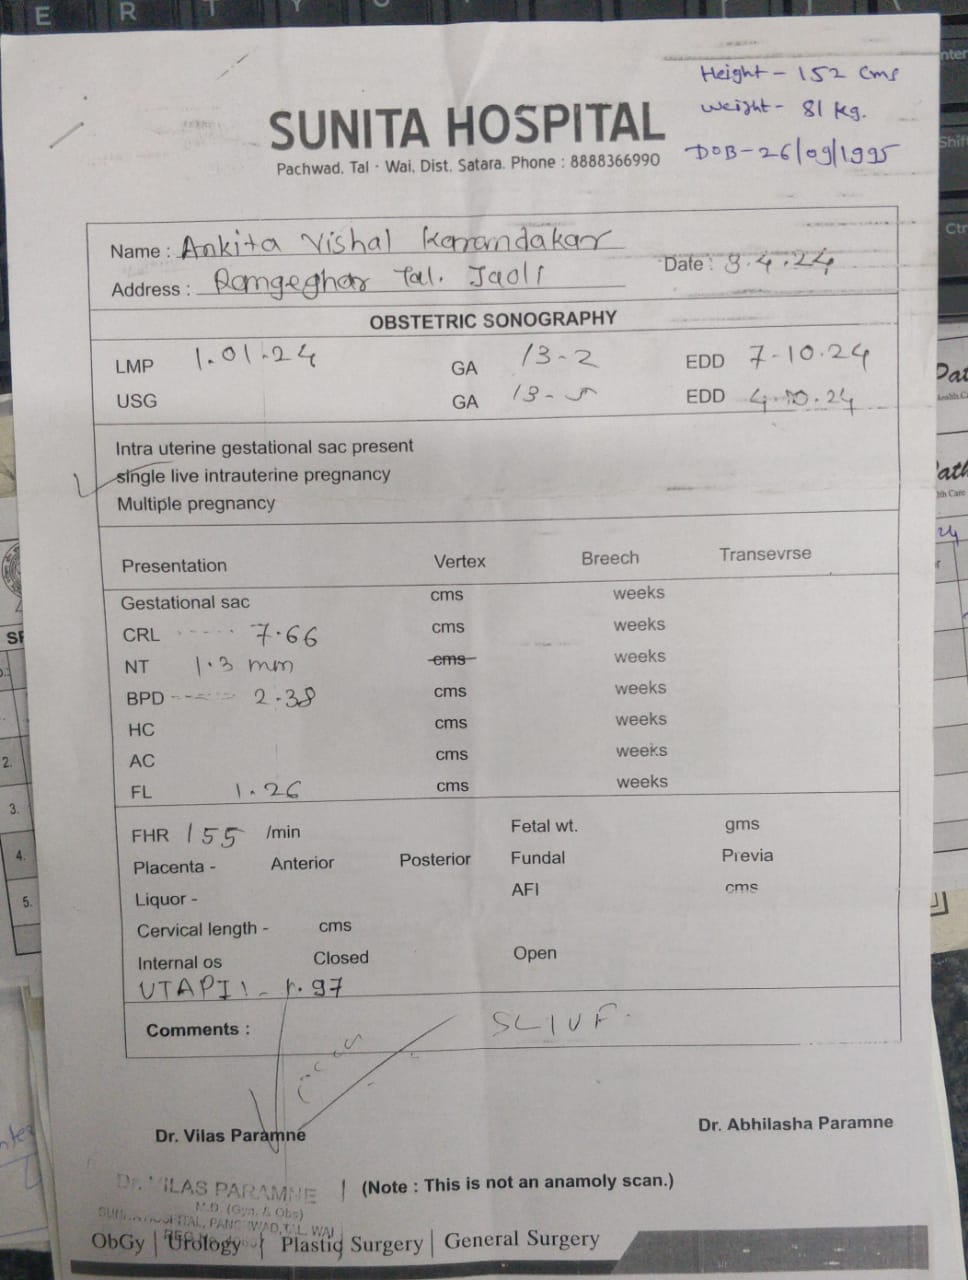 E R T Y
Height - 152 cms
Weight - 81 kg.
DOB - 26/09/1995
SUNITA HOSPITAL
Pachwad, Tal - Wai, Dist. Satara. Phone : 8888366990
Name : Ankita Vishal Karandakar
Address : Ramgeghar Tal. Jaoli Date : 3.4.24
OBSTETRIC SONOGRAPHY
LMP 1.01.24 GA 13-2 EDD 7-10.24
USG GA 13-5 EDD 4.10.24
Intra uterine gestational sac present
single live intrauterine pregnancy
Multiple pregnancy
Presentation Vertex Breech Transevrse
Gestational sac cms weeks
CRL ----- 7.66 cms weeks
NT 1.3 mm cms weeks
BPD ----- 2.38 cms weeks
HC cms weeks
AC cms weeks
FL 1.26 cms weeks
FHR 155 /min Fetal wt. gms
Placenta - Anterior Posterior Fundal Previa
Liquor - AFI cms
Cervical length - cms
Internal os Closed Open
UTAPI - 1.97
Comments : SLIUF.
Dr. Vilas Paramne Dr. Abhilasha Paramne
Dr. VILAS PARAMNE (Note : This is not an anamoly scan.)
M.D. (Gyn. & Obs)
ObGy | Urology | Plastic Surgery | General Surgery